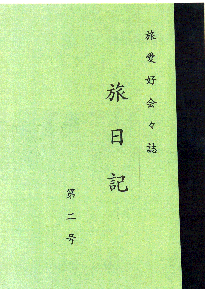 旅愛好会々誌
旅日記
第二号